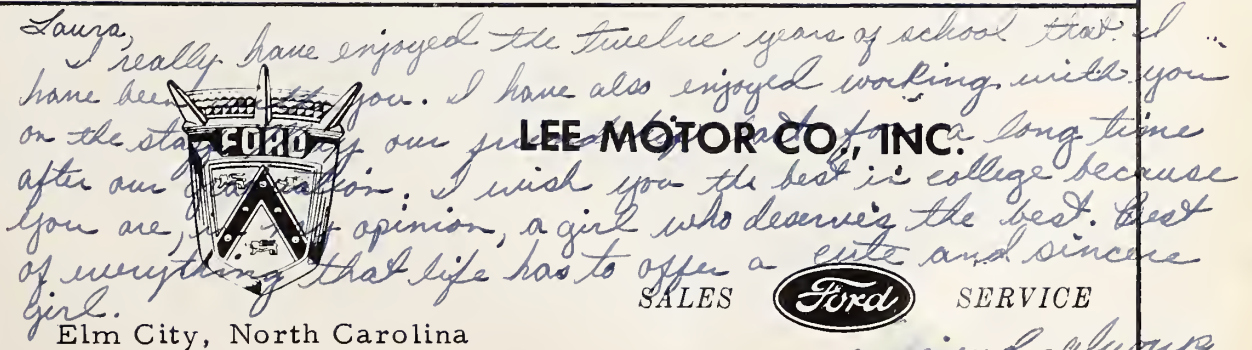 Laura,
I really have enjoyed the twelve years of school that I
have been with you. I have also enjoyed working with you
on the staff. May our friendship last for a long time
after our graduation. I wish you the best in college because
you are, in my opinion, a girl who deserves the best. Best
of everything that life has to offer a cute and sincere
girl.
FORD
LEE MOTOR CO., INC.
SALES Ford SERVICE
Elm City, North Carolina